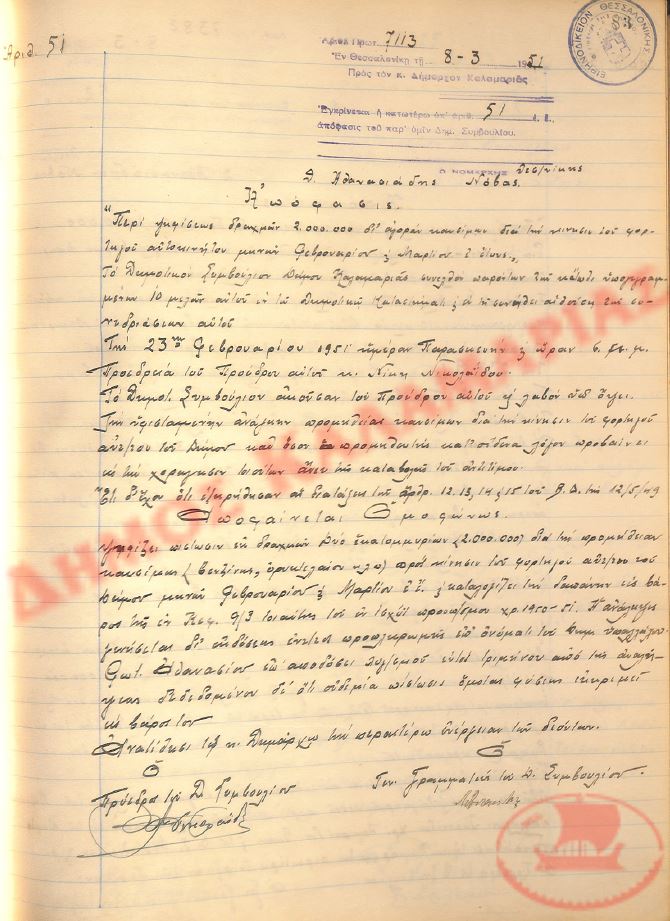 Αριθ. 51
Αριθ. Πρωτ. 7113
Ἐν Θεσσαλονίκῃ τῇ 8-3 1951
Πρὸς τὸν κ. Δήμαρχον Καλαμαριᾶς
Ἐγκρίνεται ἡ κατωτέρω ὑπ' ἀριθ. 51 ἐ. ἔ.
ἀπόφασις τοῦ παρ' ὑμῖν Δημ. Συμβουλίου.
Ο ΝΟΜΑΡΧΗΣ Θεσ/νίκης
Θ. Αθανασιάδης Νόβας
ΕΙΡΗΝΟΔΙΚΕΙΟΝ ΘΕΣΣΑΛΟΝΙΚΗΣ
83
Ἀπόφασις.
"Περί ψηφίσεως δραχμών 2.000.000 δι' αγοράν καυσίμων διά την κίνησιν του φορ-
τηγού αυτοκινήτου μηνών Φεβρουαρίου & Μαρτίου ε. έτους"
Το Δημοτικόν Συμβούλιον Δήμου Καλαμαριάς συνελθόν παρόντων των κάτωθι υπογεγραμ-
μένων 10 μελών αυτού εν τω Δημοτικώ Καταστήματι & εν τη συνήθει αιθούση των συ-
νεδριάσεων αυτού
Την 23ην Φεβρουαρίου 1951 ημέραν Παρασκευήν & ώραν 6 μ.μ.
Προεδρεία του Προέδρου αυτού κ. Νίκη Νικολαΐδου.
Το Δημοτ. Συμβούλιον ακούσαν του Προέδρου αυτού & λαβόν υπ' όψει.
Την υφισταμένην ανάγκην προμηθείας καυσίμων διά την κίνησιν του φορτηγού
αυτ/του του Δήμου καθ' όσον προμηθευτής κατ' ουδένα λόγον προβαίνει
εις την χορήγησιν τοιούτων άνευ της καταβολής του αντιτίμου.
Έτι δ' έχον ότι ετηρήθησαν αι διατάξεις των άρθρ. 12. 13, 14 & 15 του Β.Δ. της 12/5/49
Αποφαίνεται Ομοφώνως.
Ψηφίζει πίστωσιν εκ δραχμών Δύο εκατομμυρίων (2.000.000) διά την προμήθειαν
καυσίμων (βενζίνης, ορυκτελαίου κλπ) προς κίνησιν του φορτηγού αυτ/του του
Δήμου μηνών Φεβρουαρίου & Μαρτίου ε.έ. & καταλογίζει την δαπάνην εις βά-
ρος της εν Κεφ. 9/3 τοιαύτης του εν ισχύϊ προϋπ/σμού χρ. 1950-51. Η ανάληψις
γενήσεται δι' εκδόσεως εντ/τος προπληρωμής επ' ονόματι του Δημ. υπαλλήλου
Φωτ. Αθανασίου επ' αποδόσει λογ/σμού εντός τριμήνου από της αναλή-
ψεως δεδομένου δε ότι ουδεμία πίστωσις ομοίας φύσεως εκκρεμεί
εις βάρος του
Ανατίθησι τω κ. Δημάρχω την περαιτέρω ενέργειαν των δεόντων.
Ο Ο
Πρόεδρος του Δ. Συμβουλίου Γεν. Γραμματεύς του Δ. Συμβουλίου.
ΔΗΜΟΣ ΚΑΛΑΜΑΡΙΑΣ